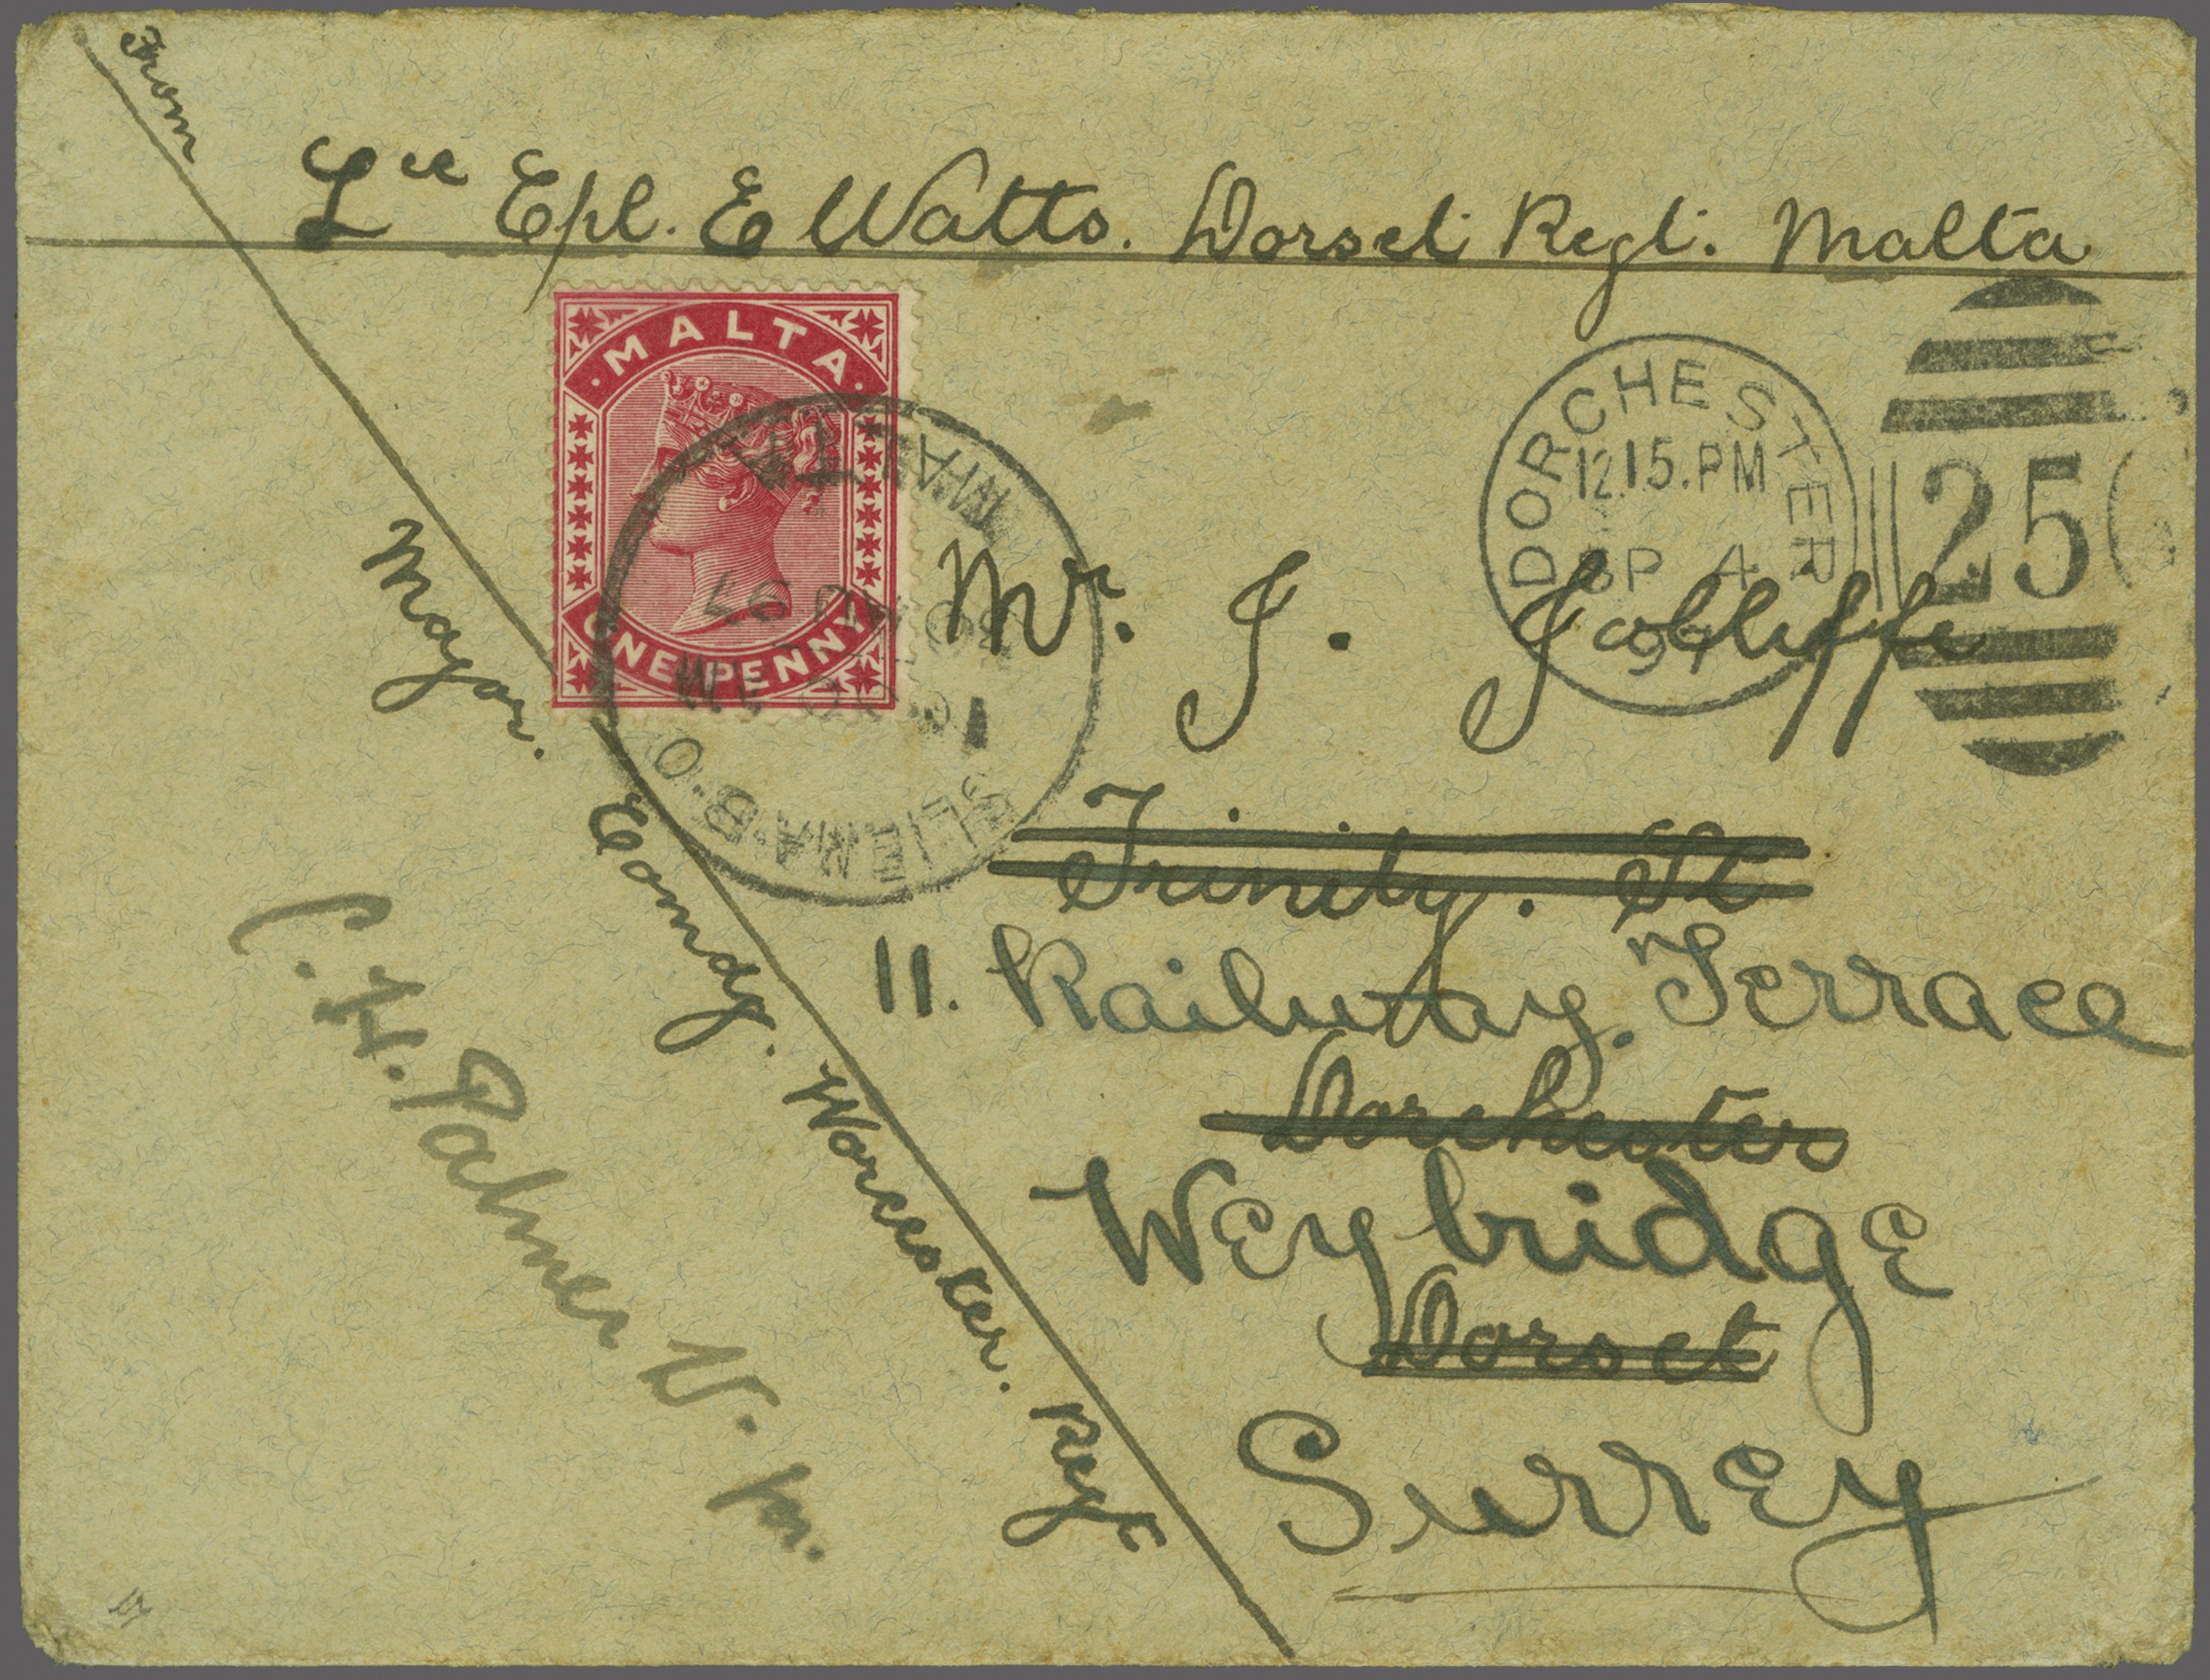 From
Lce Cpl. E Watts. Dorset Regt. Malta
MALTA
ONE PENNY
MALTA
97
SLIEMA·B.O
DORCHESTER
12.15.PM
SP 4
97
25
Mr. J. Jolliffe
Trinity. St
11. Railway. Terrace
Dorchester
Weybridge
Dorset
Surrey
Major.
Comdg. Worcester. Regt
C. H. Palmer